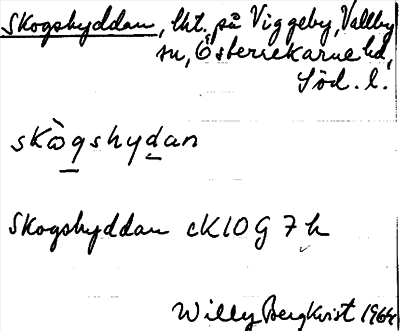 Skogshyddan, lht. på Viggeby, Vallby
sn, Österrekarne hd,
Söd. l.
skògshydan
Skogshyddan cK10G 7 h
Willy Bergkvist 1964